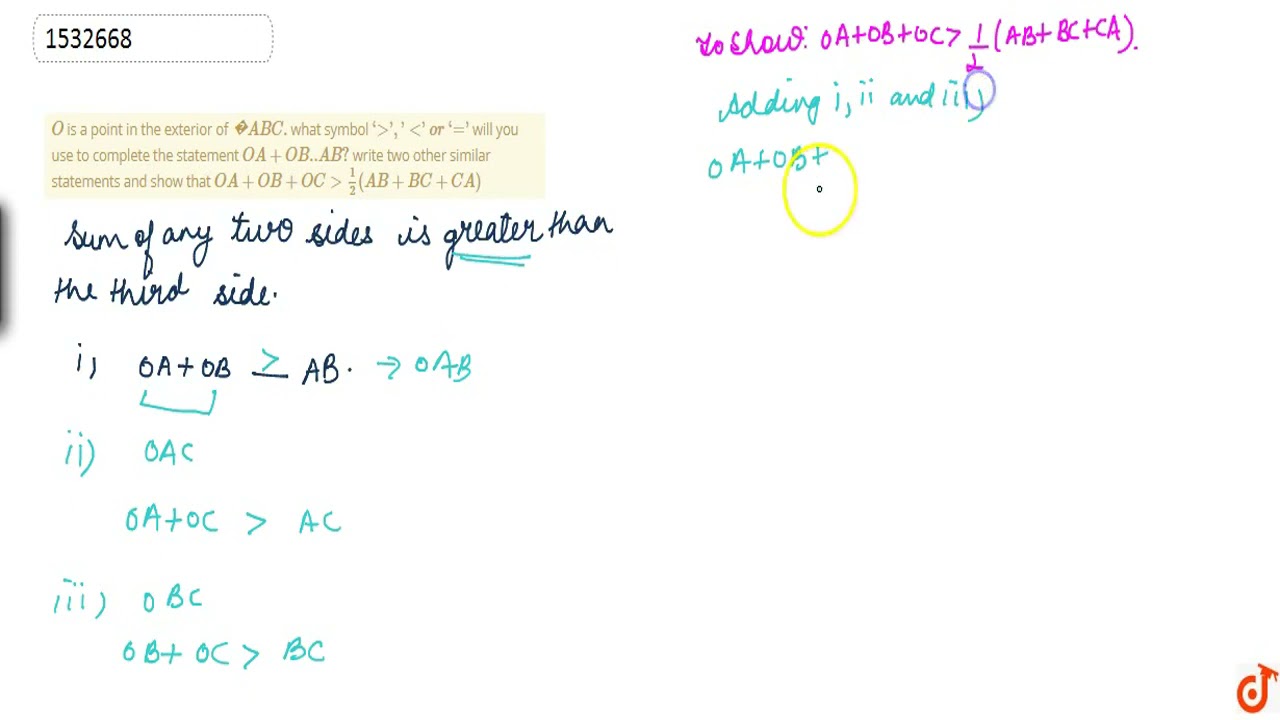 1532668
O is a point in the exterior of �ABC. what symbol ‘>’,’ <’ or ‘=’ will you
use to complete the statement OA + OB..AB? write two other similar
statements and show that OA + OB + OC > 1/2 (AB + BC + CA)
Sum of any two sides is greater than
the third side.
i) OA + OB > AB. → OAB
ii) OAC
OA + OC > AC
iii) OBC
OB + OC > BC
To show: OA + OB + OC > 1/2 (AB + BC + CA).
Adding i, ii and iii,
OA + OB +